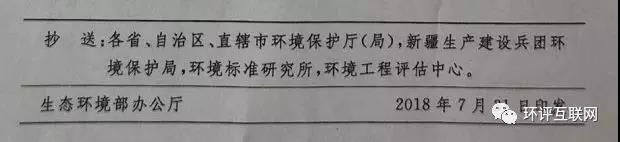 抄 送:各省、自治区、直辖市环境保护厅(局),新疆生产建设兵团环
境保护局,环境标准研究所,环境工程评估中心。
生态环境部办公厅 2018年7月 日印发
环评互联网